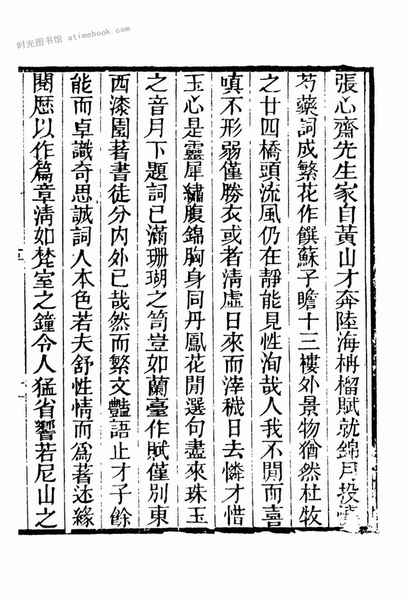 时光图书馆 atimebook.com
張心齋先生家自黃山才奔陸海柟榴賦就錦月投
芍藥詞成繁花作饌蘇子瞻十三樓外景物猶然杜牧
之廿四橋頭流風仍在靜能見性洵哉人我不閒而喜
嗔不形弱僅勝衣或者清虛日來而滓穢日去憐才惜
玉心是靈犀繡腹錦胸身同丹鳳花閒選句盡來珠玉
之音月下題詞已滿珊瑚之笥豈如蘭臺作賦僅別東
西漆園著書徒分內外已哉然而繁文豔語止才子餘
能而卓識奇思誠詞人本色若夫舒性情而爲著述緣
閱歴以作篇章淸如梵室之鐘令人猛省響若尼山之